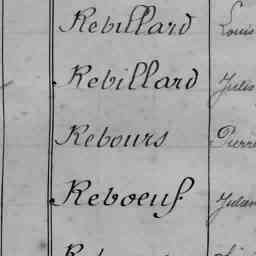 Rebillard Louis
Rebillard Jules
Rebours Pierre
Reboeuf